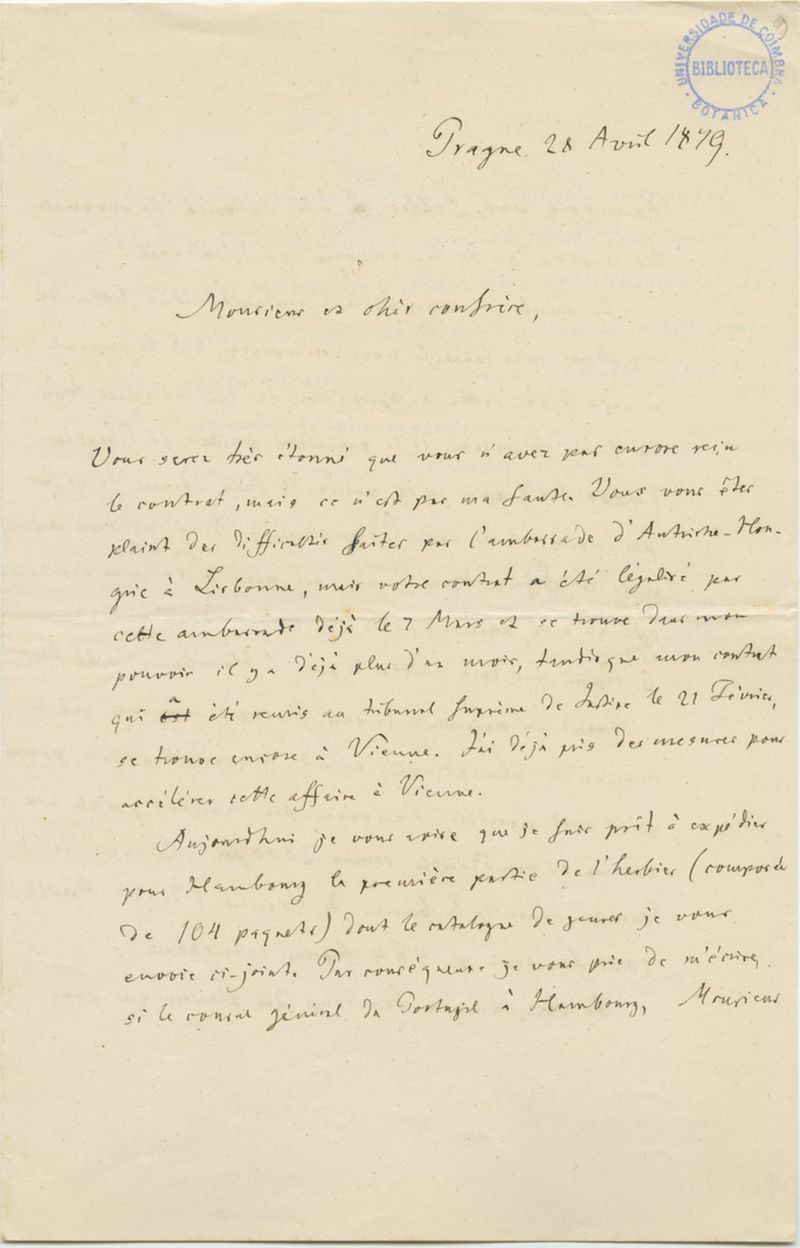 UNIVERSIDADE DE COIMBRA
BIBLIOTECA
BOTANICA
9
Prague 28 Avril 1879.
Monsieur et cher confrère,
Vous serez très étonné que vous n'avez pas encore reçu
le contrat, mais ce n'est pas ma faute. Vous vous êtes
plaint des difficultés faites par l'ambassade d'Autriche-Hon-
grie à Lisbonne, mais votre contrat a été légalisé par
cette ambassade déjà le 7 Mars et se trouve dans mon
pouvoir il y a déjà plus d'un mois, tandisque mon contrat
qui a été remis au tribunal suprème de Justice le 21 Février,
se trouve encore à Vienne. J'ai déjà pris des mesures pour
accélérer cette affaire à Vienne.
Aujourdhui je vous avise que je suis prêt à expédier
pour Hambourg la première partie de l'herbier (composée
de 104 paquets) dont le catalogue de genres je vous
envoie ci-joint. Par conséquence je vous prie de m'écrire,
si le consul général du Portugal à Hambourg, Monsieur